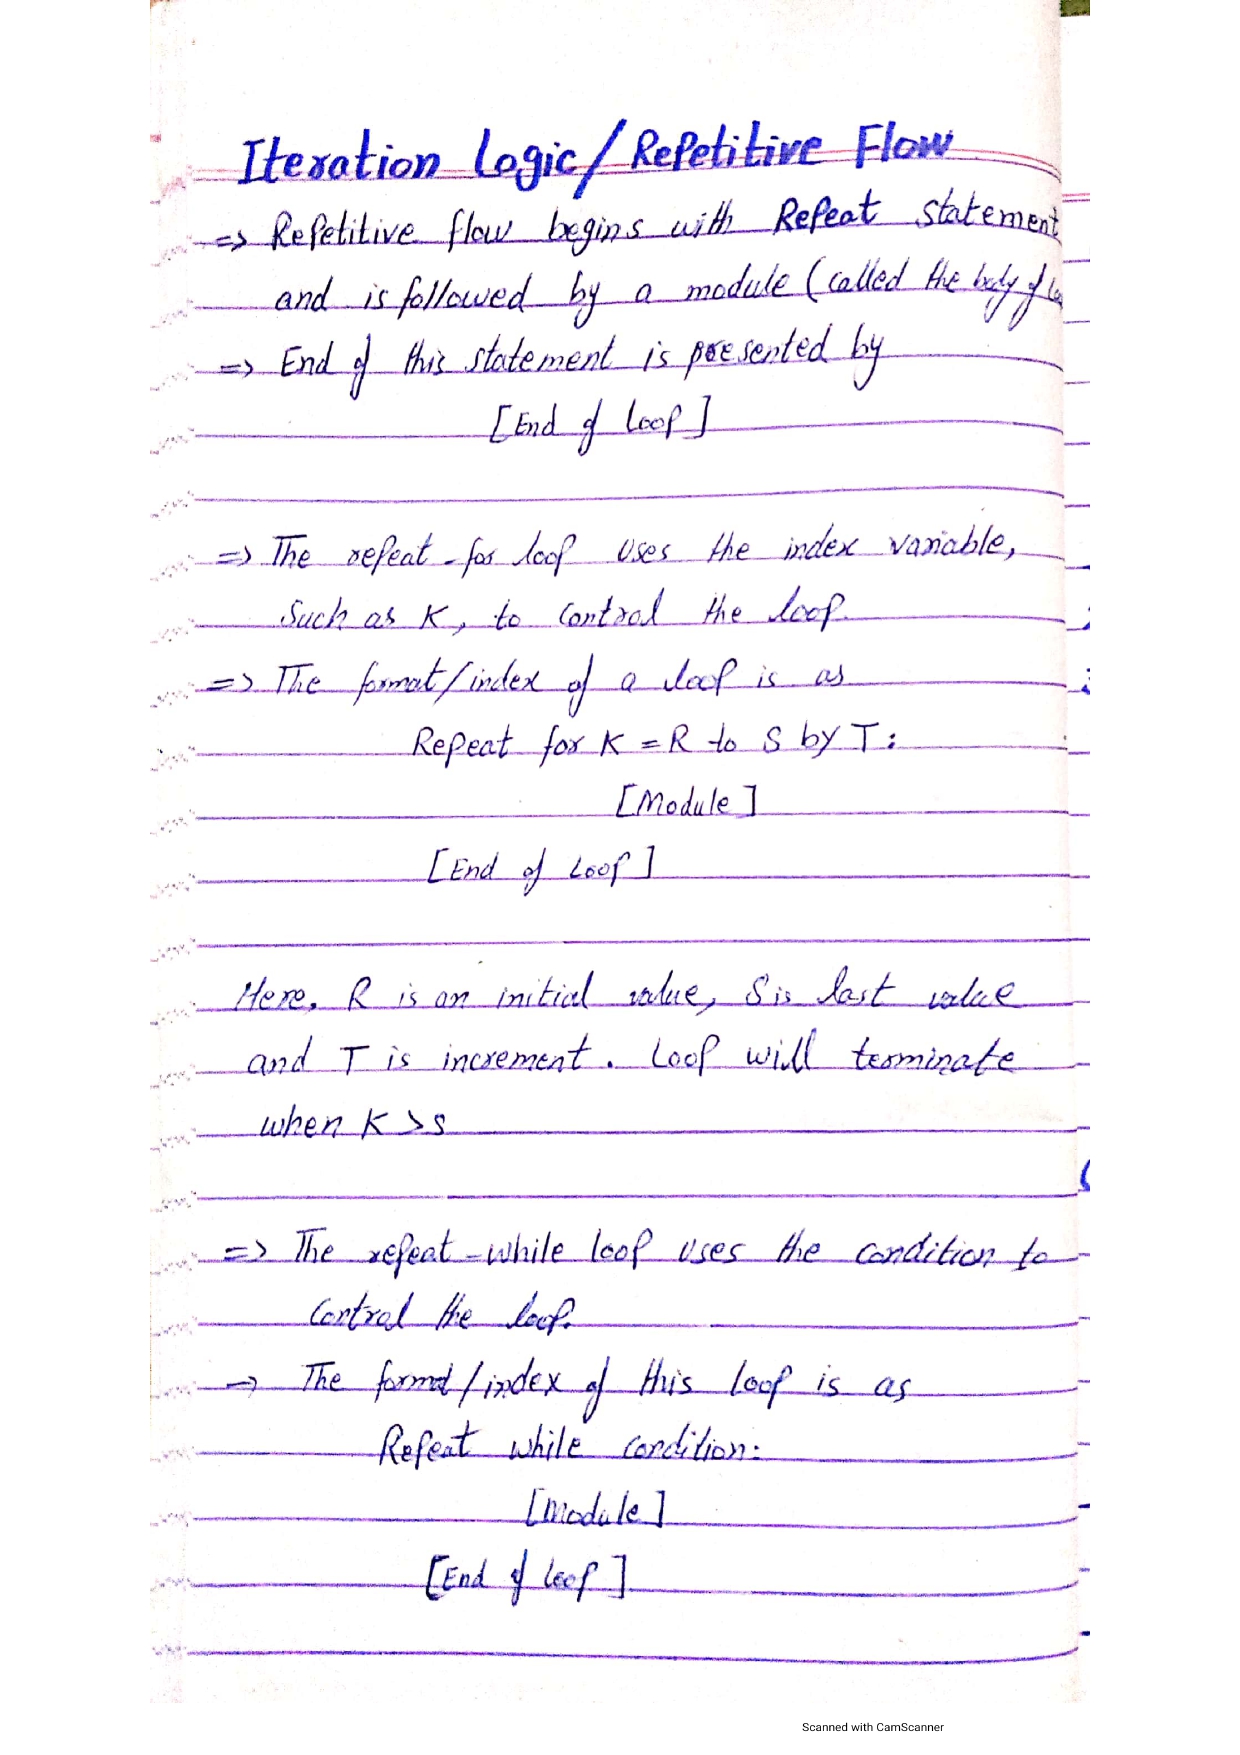 Iteration Logic/Repetitive Flow
=> Repetitive flow begins with Repeat statement
and is followed by a module (called the body of
=> End of this statement is presented by
[End of loop]
=> The repeat-for loop uses the index variable,
Such as K, to control the loop.
=> The format/index of a loop is as
Repeat for K = R to S by T:
[Module]
[End of Loop]
Here, R is an initial value, S is last value
and T is increment. Loop will terminate
when K > S
=> The repeat-while loop uses the condition to
control the loop.
→ The format/index of this loop is as
Repeat while condition:
[Module]
[End of loop]
Scanned with CamScanner